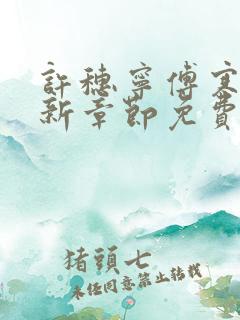 許穗寧傅寒
新章節免費
猪頭七
未经同意禁止转载